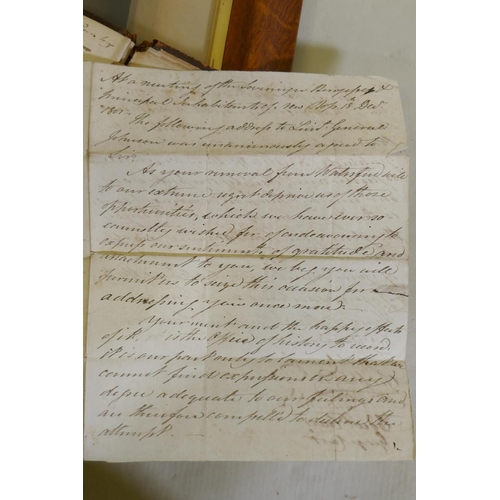 At a meeting of the Sovereign Burgesses &
Principal Inhabitants of New Ross 18th Decr
1801
The following address to Lieut General
Johnson was unanimously agreed to
Sir
As your removal from Waterford will
to our extreme regret deprive us of those
opportunities, which we have ever so
cannestly wished for of endeavouring to
express our sentiments of gratitude and
attachment to you, we beg you will
permit us to seize this occasion for
addressing you once more.
Your merit and the happy effects
of it is the office of history to record
it is our part only to lament that we
cannot find expressions in any
degree adequate to our feelings and
are therefore compelled to decline the
attempt.